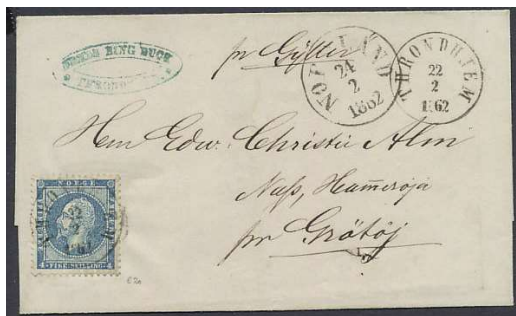 BING BUCK
pr Gyller
NORDLAND
24
2
1862
THRONDHJEM
22
2
1862
Herrn Edw. Christie Alm
Næss, Hammerøja
pr Grötöj
NORGE
22
2
1862
4 FIRE SKILLING 4